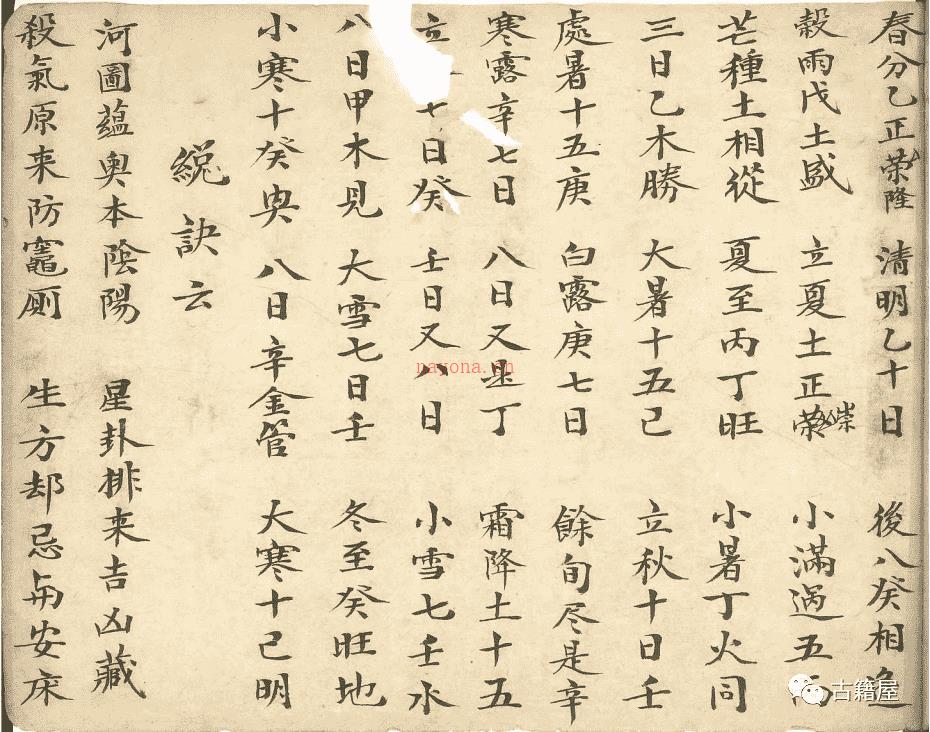 春分乙正荣隆 清明乙十日 後八癸相逸
穀雨戊土盛 立夏土正荣崇 小滿過五丙
芒種土相從 夏至丙丁旺 小暑丁火同
三日乙木勝 大暑十五己 立秋十日壬
處暑十五庚 白露庚七日 餘旬尽是辛
寒露辛七日 八日又是丁 霜降土十五
立 七日癸 壬日又八日 小雪七壬水
八日甲木見 大雪七日壬 冬至癸旺地
小寒十癸與 八日辛金管 大寒十己明
総訣云
河圖蘊奥本陰陽 星卦排来吉凶藏
殺氣原来防竈厠 生方却忌与安床
nayona.cn
古籍屋